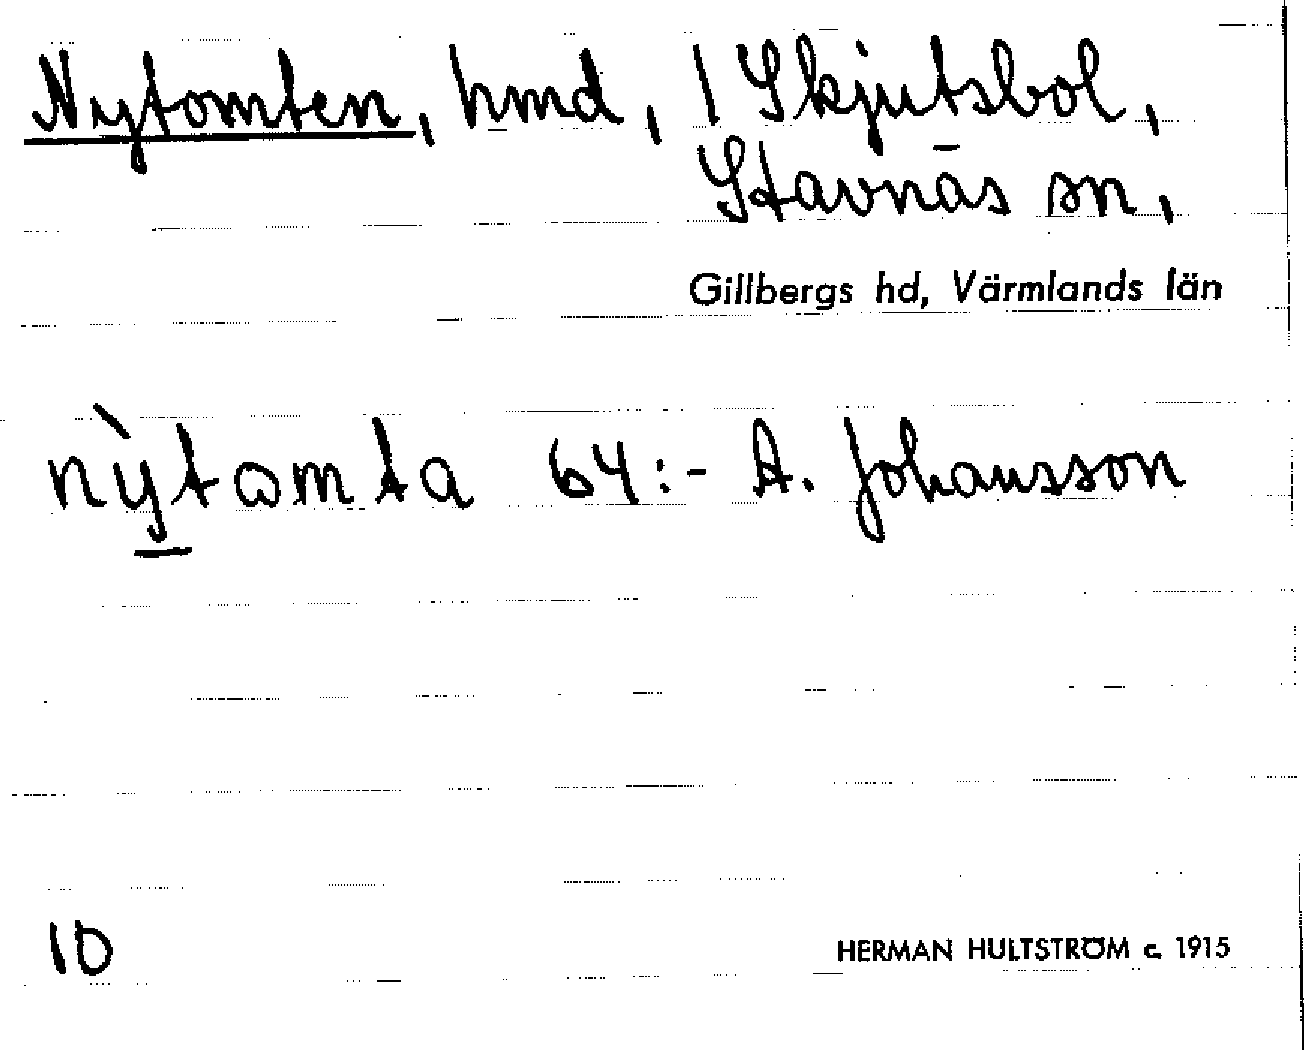 Nytomten, hmd, / Skjutsbol,
Stavnäs sn,
Gillbergs hd, Värmlands län
nỳtɷmta 64:- A. Johansson
10
HERMAN HULTSTRÖM c. 1915